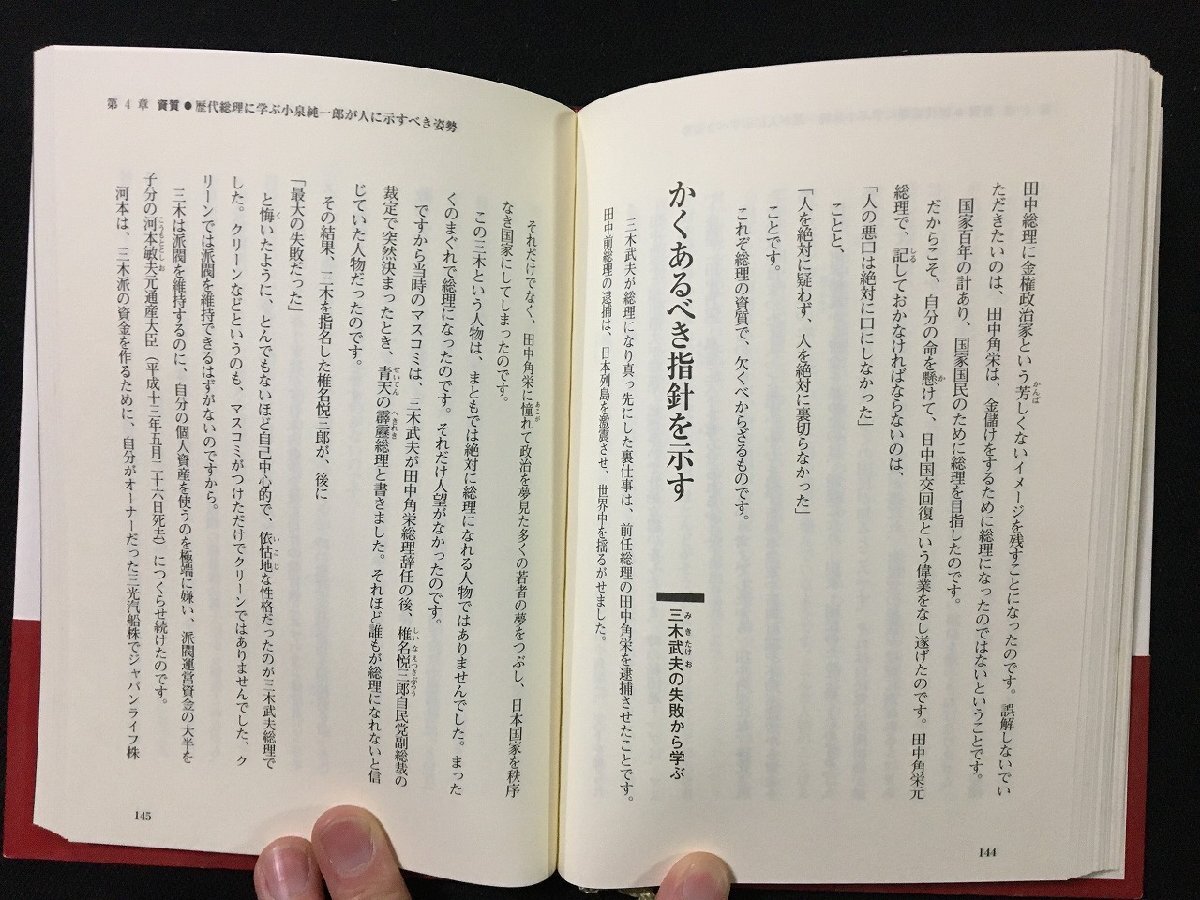 田中総理に金権政治家という芳しくないイメージを残すことになったのです。誤解しないでい
ただきたいのは、田中角栄は、金儲けをするために総理になったのではないということです。
国家百年の計あり、国家国民のために総理を目指したのです。
だからこそ、自分の命を懸けて、日中国交回復という偉業をなし遂げたのです。田中角栄元
総理で、記しておかなければならないのは、
「人の悪口は絶対に口にしなかった」
ことと、
「人を絶対に疑わず、人を絶対に裏切らなかった」
ことです。
これぞ総理の資質で、欠くべからざるものです。
かくあるべき指針を示す
三木武夫の失敗から学ぶ
三木武夫が総理になり真っ先にした裏仕事は、前任総理の田中角栄を逮捕させたことです。
田中前総理の逮捕は、日本列島を激震させ、世界中を揺るがせました。
144
第4章 資質●歴代総理に学ぶ小泉純一郎が人に示すべき姿勢
それだけでなく、田中角栄に憧れて政治を夢見た多くの若者の夢をつぶし、日本国家を秩序
なき国家にしてしまったのです。
この三木という人物は、まともでは絶対に総理になれる人物ではありませんでした。まった
くのまぐれで総理になったのです。それだけ人望がなかったのです。
ですから当時のマスコミは、三木武夫が田中角栄総理辞任の後、椎名悦三郎自民党副総裁の
裁定で突然決まったとき、青天の霹靂総理と書きました。それほど誰もが総理になれないと信
じていた人物だったのです。
その結果、三木を指名した椎名悦三郎が、後に
「最大の失敗だった」
と悔いたように、とんでもないほど自己中心的で、依怙地な性格だったのが三木武夫総理で
した。クリーンなどというのも、マスコミがつけただけでクリーンではありませんでした。ク
リーンでは派閥を維持できるはずがないのですから。
三木は派閥を維持するのに、自分の個人資産を使うのを極端に嫌い、派閥運営資金の大半を
子分の河本敏夫元通産大臣（平成十三年五月二十六日死去）につくらせ続けたのです。
河本は、三木派の資金を作るために、自分がオーナーだった三光汽船株でジャパンライフ株
145